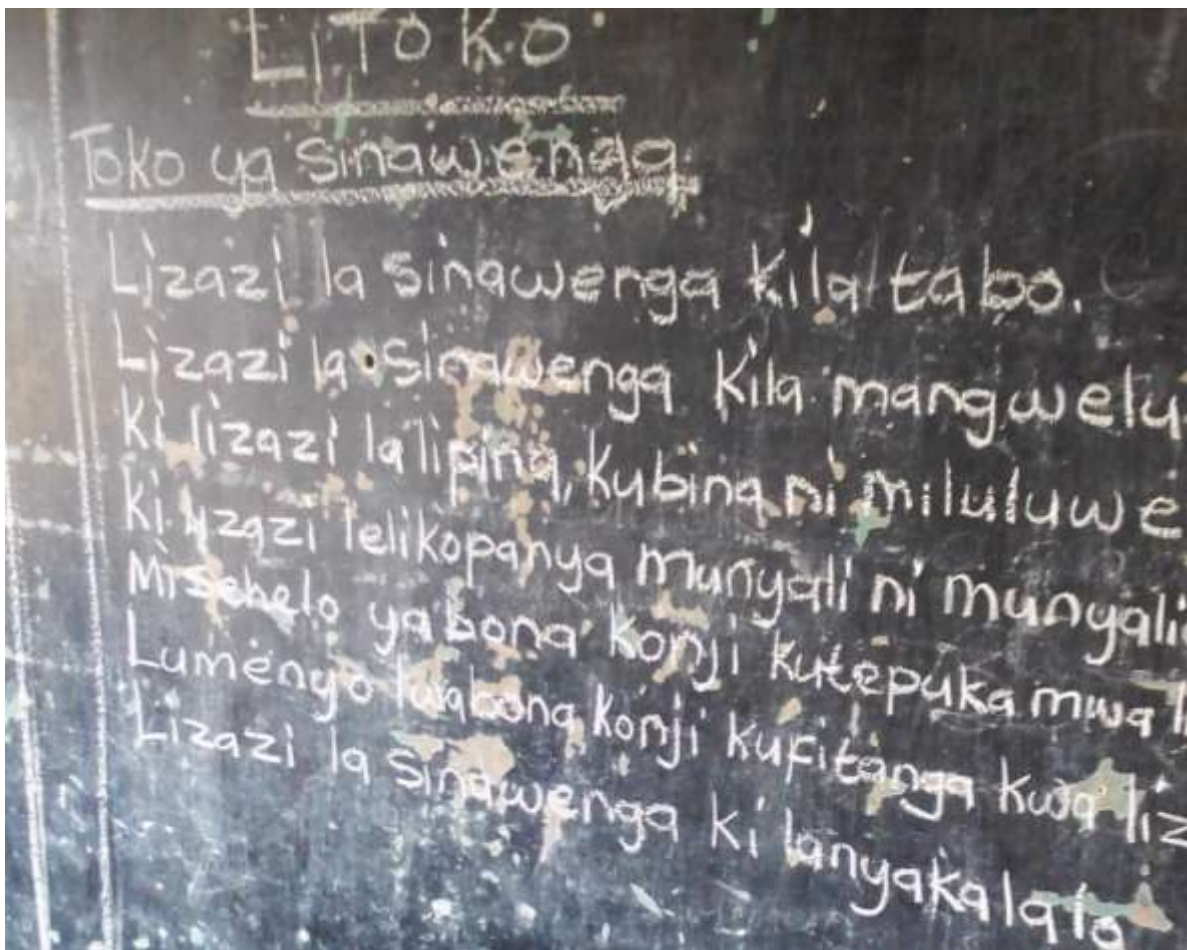 LITOKO
Toko ya sinawenga
Lizazi la sinawenga kila tabo.
Lizazi la sinawenga kila mangwelu
Ki lizazi la lipina, kubina ni miluluwe
Ki lizazi lelikopanya munyali ni munyali
Misebelo ya bona konji kutepuka mwa
Lumenyo lwabona konji kufitanga kwa liz
Lizazi la sinawenga ki lanyakalalo